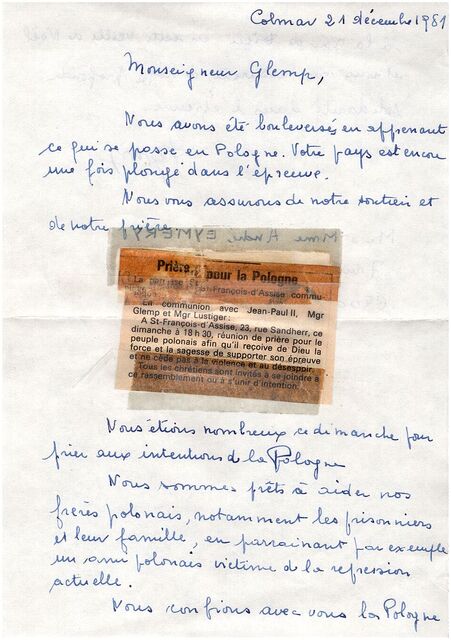 Colmar 21 décembre 1981
Monseigneur Glemp,
Nous avons été bouleversés en apprenant
ce qui se passe en Pologne. Votre pays est encore
une fois plongé dans l'épreuve.
Nous vous assurons de notre soutien et
de notre prière.
Mme André EYMERY
Prière pour la Pologne
St-François-d'Assise commu-
En communion avec Jean-Paul II, Mgr
Glemp et Mgr Lustiger :
A St-François-d'Assise, 23, rue Sandherr, ce
dimanche à 18 h 30, réunion de prière pour le
peuple polonais afin qu'il reçoive de Dieu la
force et la sagesse de supporter son épreuve
et ne cède pas à la violence et au désespoir.
Tous les chrétiens sont invités à se joindre à
ce rassemblement ou à s'unir d'intention.
Nous étions nombreux ce dimanche pour
prier aux intentions de la Pologne
Nous sommes prêts à aider nos
frères polonais, notamment les prisonniers
et leur famille, en parrainant par exemple
un ami polonais victime de la répression
actuelle.
Nous confions avec vous la Pologne